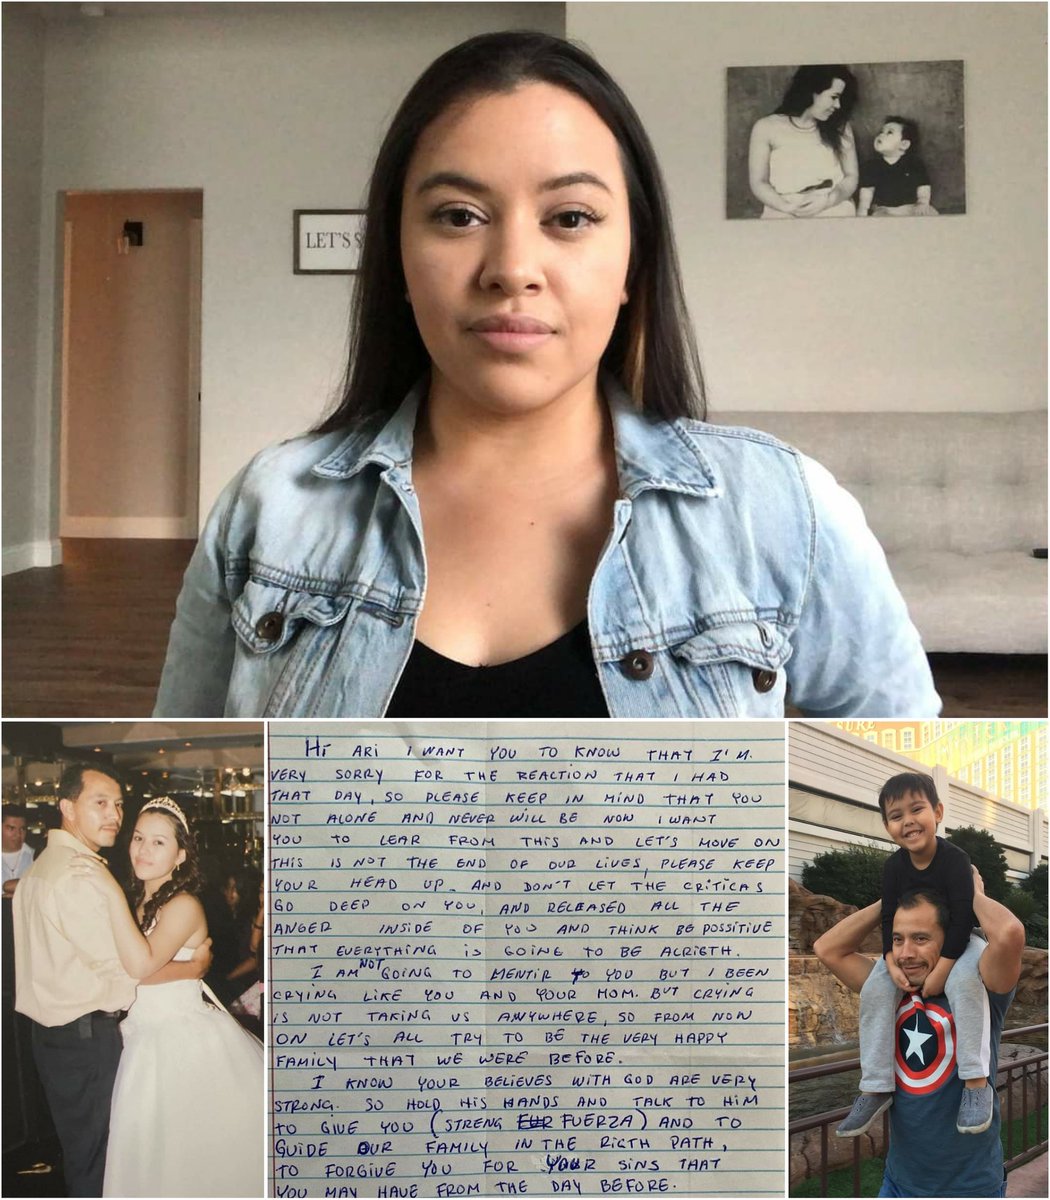 LET'S
SURE
HI ARI I WANT YOU TO KNOW THAT I'M.
VERY SORRY FOR THE REACTION THAT I HAD
THAT DAY, SO PLEASE KEEP IN MIND THAT YOU
NOT ALONE AND NEVER WILL BE NOW I WANT
YOU TO LEAR FROM THIS AND LET'S MOVE ON
THIS IS NOT THE END OF OUR LIVES, PLEASE KEEP
YOUR HEAD UP. AND DON'T LET THE CRITICAS
GO DEEP ON YOU, AND RELEASED ALL THE
ANGER INSIDE OF YOU AND THINK BE POSSITIVE
THAT EVERYTHING IS GOING TO BE ALRIGTH.
I AM NOT GOING TO MENTIR TO YOU BUT I BEEN
CRYING LIKE YOU AND YOUR MOM. BUT CRYING
IS NOT TAKING US ANYWHERE, SO FROM NOW
ON LET'S ALL TRY TO BE THE VERY HAPPY
FAMILY THAT WE WERE BEFORE.
I KNOW YOUR BELIEVES WITH GOD ARE VERY
STRONG. SO HOLD HIS HANDS AND TALK TO HIM
TO GIVE YOU (STRENG FUERZA) AND TO
GUIDE OUR FAMILY IN THE RIGTH PATH,
TO FORGIVE YOU FOR YOUR SINS THAT
YOU MAY HAVE FROM THE DAY BEFORE.